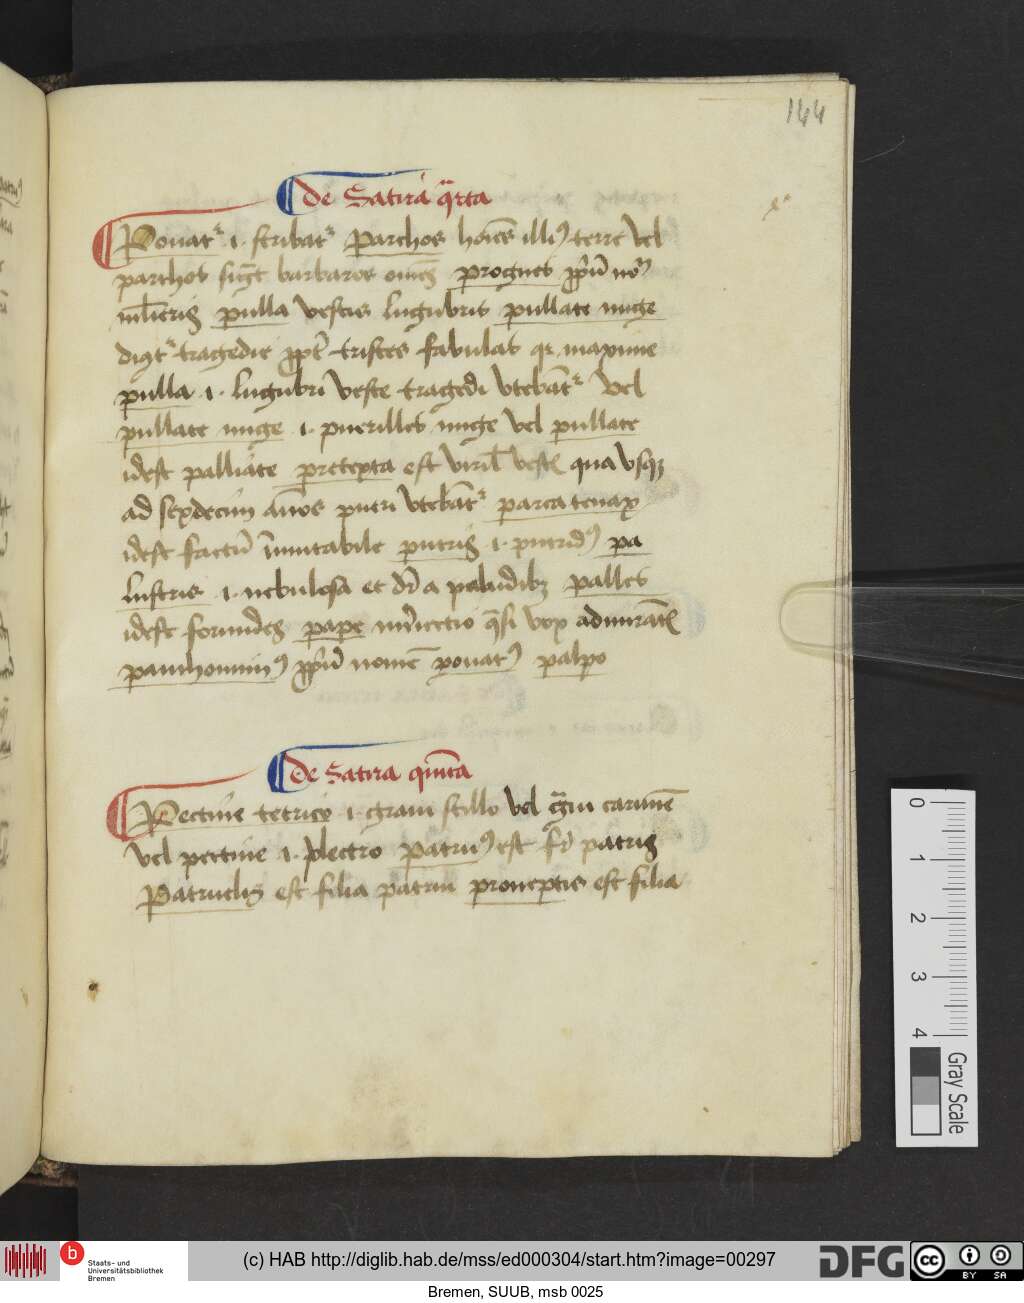 144
De Satira q̄rta
Ponat᷑ .i. scribat᷑ Parthos hoīes illi9 terre vel
parthos sigt barbaros om̄es prognes ppriū no9
ml̄ieris pulla vestis lugubris pullate nuge
dicūt᷑ tragedie ppt̄ tristes fabulas qr maxime
pulla .i. lugubri veste tragedi vtebāt᷑ vel
pullate nuge .i. puerilles nuge vel pullate
idest palliate pretexta est viril̄ vest qua vsqz
ad sexdecim ān̄os pueri vtebāt᷑ parca tenax
idest factū īmutabile putris .i. putrid9 pa
lustris .i. nebulosa et dr̄ a paludibz palles
idest formides pape īt̄iectio q̄si vox admirāt
panthomim9 ppriū nomē ponat9 palpo
De Satira quīta
Pectine tetrico .i. graui stillo vel g̃ui carminē
vel pectine .i. plectro patru9 est fr̄ patris
Patruelis est filia patrui proneptis est filia
0
1
2
3
4
Gray Scale
b
Staats- und
Universitätsbibliothek
Bremen
(c) HAB http://diglib.hab.de/mss/ed000304/start.htm?image=00297
DFG
cc
BY SA
Bremen, SUUB, msb 0025